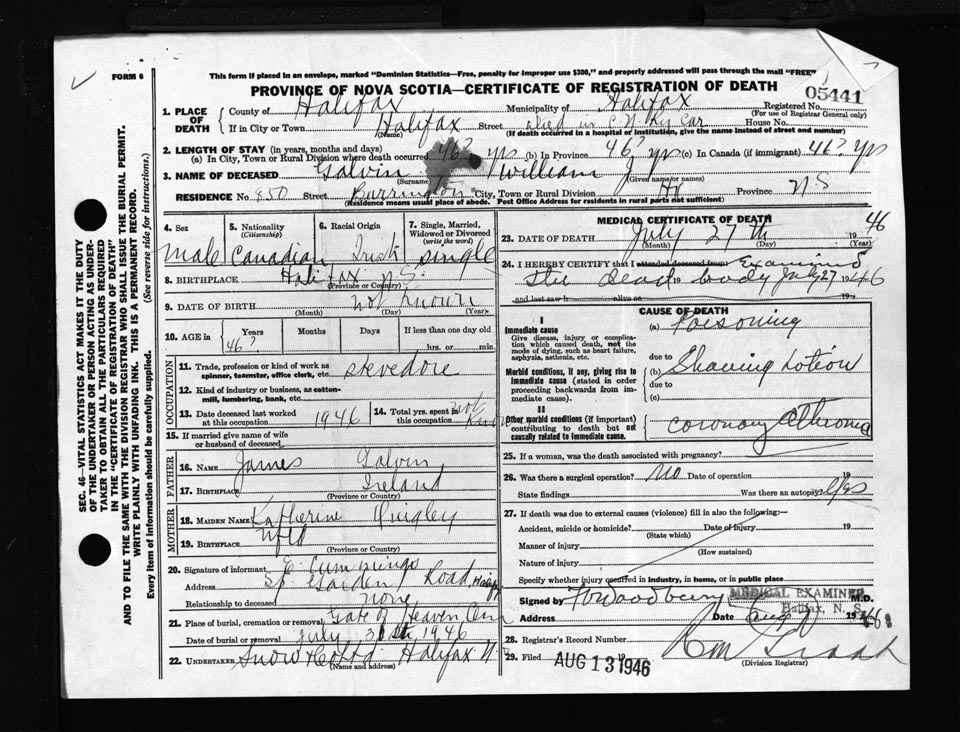 FORM 6
This form if placed in an envelope, marked "Dominion Statistics—Free, penalty for improper use $300," and properly addressed will pass through the mail "FREE"
PROVINCE OF NOVA SCOTIA—CERTIFICATE OF REGISTRATION OF DEATH
05441
1. PLACE OF DEATH
County of Halifax Municipality of Halifax Registered No.
(For use of Registrar General only)
If in City or Town Halifax Street died in C N Ry Car House No.
(Name) (If death occurred in a hospital or institution, give the name instead of street and number)
2. LENGTH OF STAY (in years, months and days)
(a) In City, Town or Rural Division where death occurred 46? yrs (b) In Province 46? yrs (c) In Canada (if immigrant) 46? yrs
3. NAME OF DECEASED Galvin William J
(Surname) (Given name or names)
RESIDENCE No. 850 Street Barrington City, Town or Rural Division Hx Province N S
(Residence means usual place of abode. Post Office Address for residents in rural parts not sufficient)
4. Sex
Male
5. Nationality
(Citizenship)
Canadian
6. Racial Origin
Irish
7. Single, Married, Widowed or Divorced
(write the word)
single
8. BIRTHPLACE Halifax N.S.
(Province or Country)
9. DATE OF BIRTH not known
(Month) (Day) (Year)
10. AGE in
Years Months Days If less than one day old
46? hrs. or min.
OCCUPATION
11. Trade, profession or kind of work as spinner, teamster, office clerk, etc. stevedore
12. Kind of industry or business, as cotton-mill, lumbering, bank, etc.
13. Date deceased last worked at this occupation 1946
14. Total yrs. spent in not known
15. If married give name of wife or husband of deceased
FATHER
16. NAME James Galvin
17. BIRTHPLACE Ireland
(Province or Country)
MOTHER
18. MAIDEN NAME Katherine Quigley
19. BIRTHPLACE Nfld
(Province or Country)
20. Signature of informant E Cummings
Address Sp. Garden Road Halifax
Relationship to deceased none
21. Place of burial, cremation or removal Gate of Heaven Cem
Date of burial or removal July 30th 1946
22. UNDERTAKER Snow & Co Ltd. Halifax N S
(Name and address)
MEDICAL CERTIFICATE OF DEATH
23. DATE OF DEATH July 27th 1946
(Month) (Day) (Year)
24. I HEREBY CERTIFY that I attended deceased from Examined
the dead 19 body July 27 1946
and last saw h alive on 19
CAUSE OF DEATH
I
Immediate cause
Give disease, injury or complication which caused death, not the mode of dying, such as heart failure, asphyxia, asthenia, etc.
(a) Poisoning
due to
Morbid conditions, if any, giving rise to immediate cause (stated in order proceeding backwards from immediate cause).
(b) Shaving Lotion
due to
(c)
II
Other morbid conditions (if important) contributing to death but not causally related to immediate cause.
coronary atheroma
25. If a woman, was the death associated with pregnancy?
26. Was there a surgical operation? no Date of operation 19
State findings Was there an autopsy? yes
27. If death was due to external causes (violence) fill in also the following:
Accident, suicide or homicide? Date of injury 19
(State which)
Manner of injury
(How sustained)
Nature of injury
Specify whether injury occurred in industry, in home, or in public place
Signed by M.D.
MEDICAL EXAMINER
Halifax, N. S.
Address Date Aug 1946
28. Registrar's Record Number
29. Filed AUG 13 1946 19
(Division Registrar)
SEC. 46—VITAL STATISTICS ACT MAKES IT THE DUTY
OF THE UNDERTAKER OR PERSON ACTING AS UNDER-
TAKER TO OBTAIN ALL THE PARTICULARS REQUIRED
IN THE "CERTIFICATE OF REGISTRATION OF DEATH"
AND TO FILE THE SAME WITH THE DIVISION REGISTRAR WHO SHALL ISSUE THE BURIAL PERMIT.
WRITE PLAINLY WITH UNFADING INK. THIS IS A PERMANENT RECORD.
Every item of information should be carefully supplied. (See reverse side for instructions.)